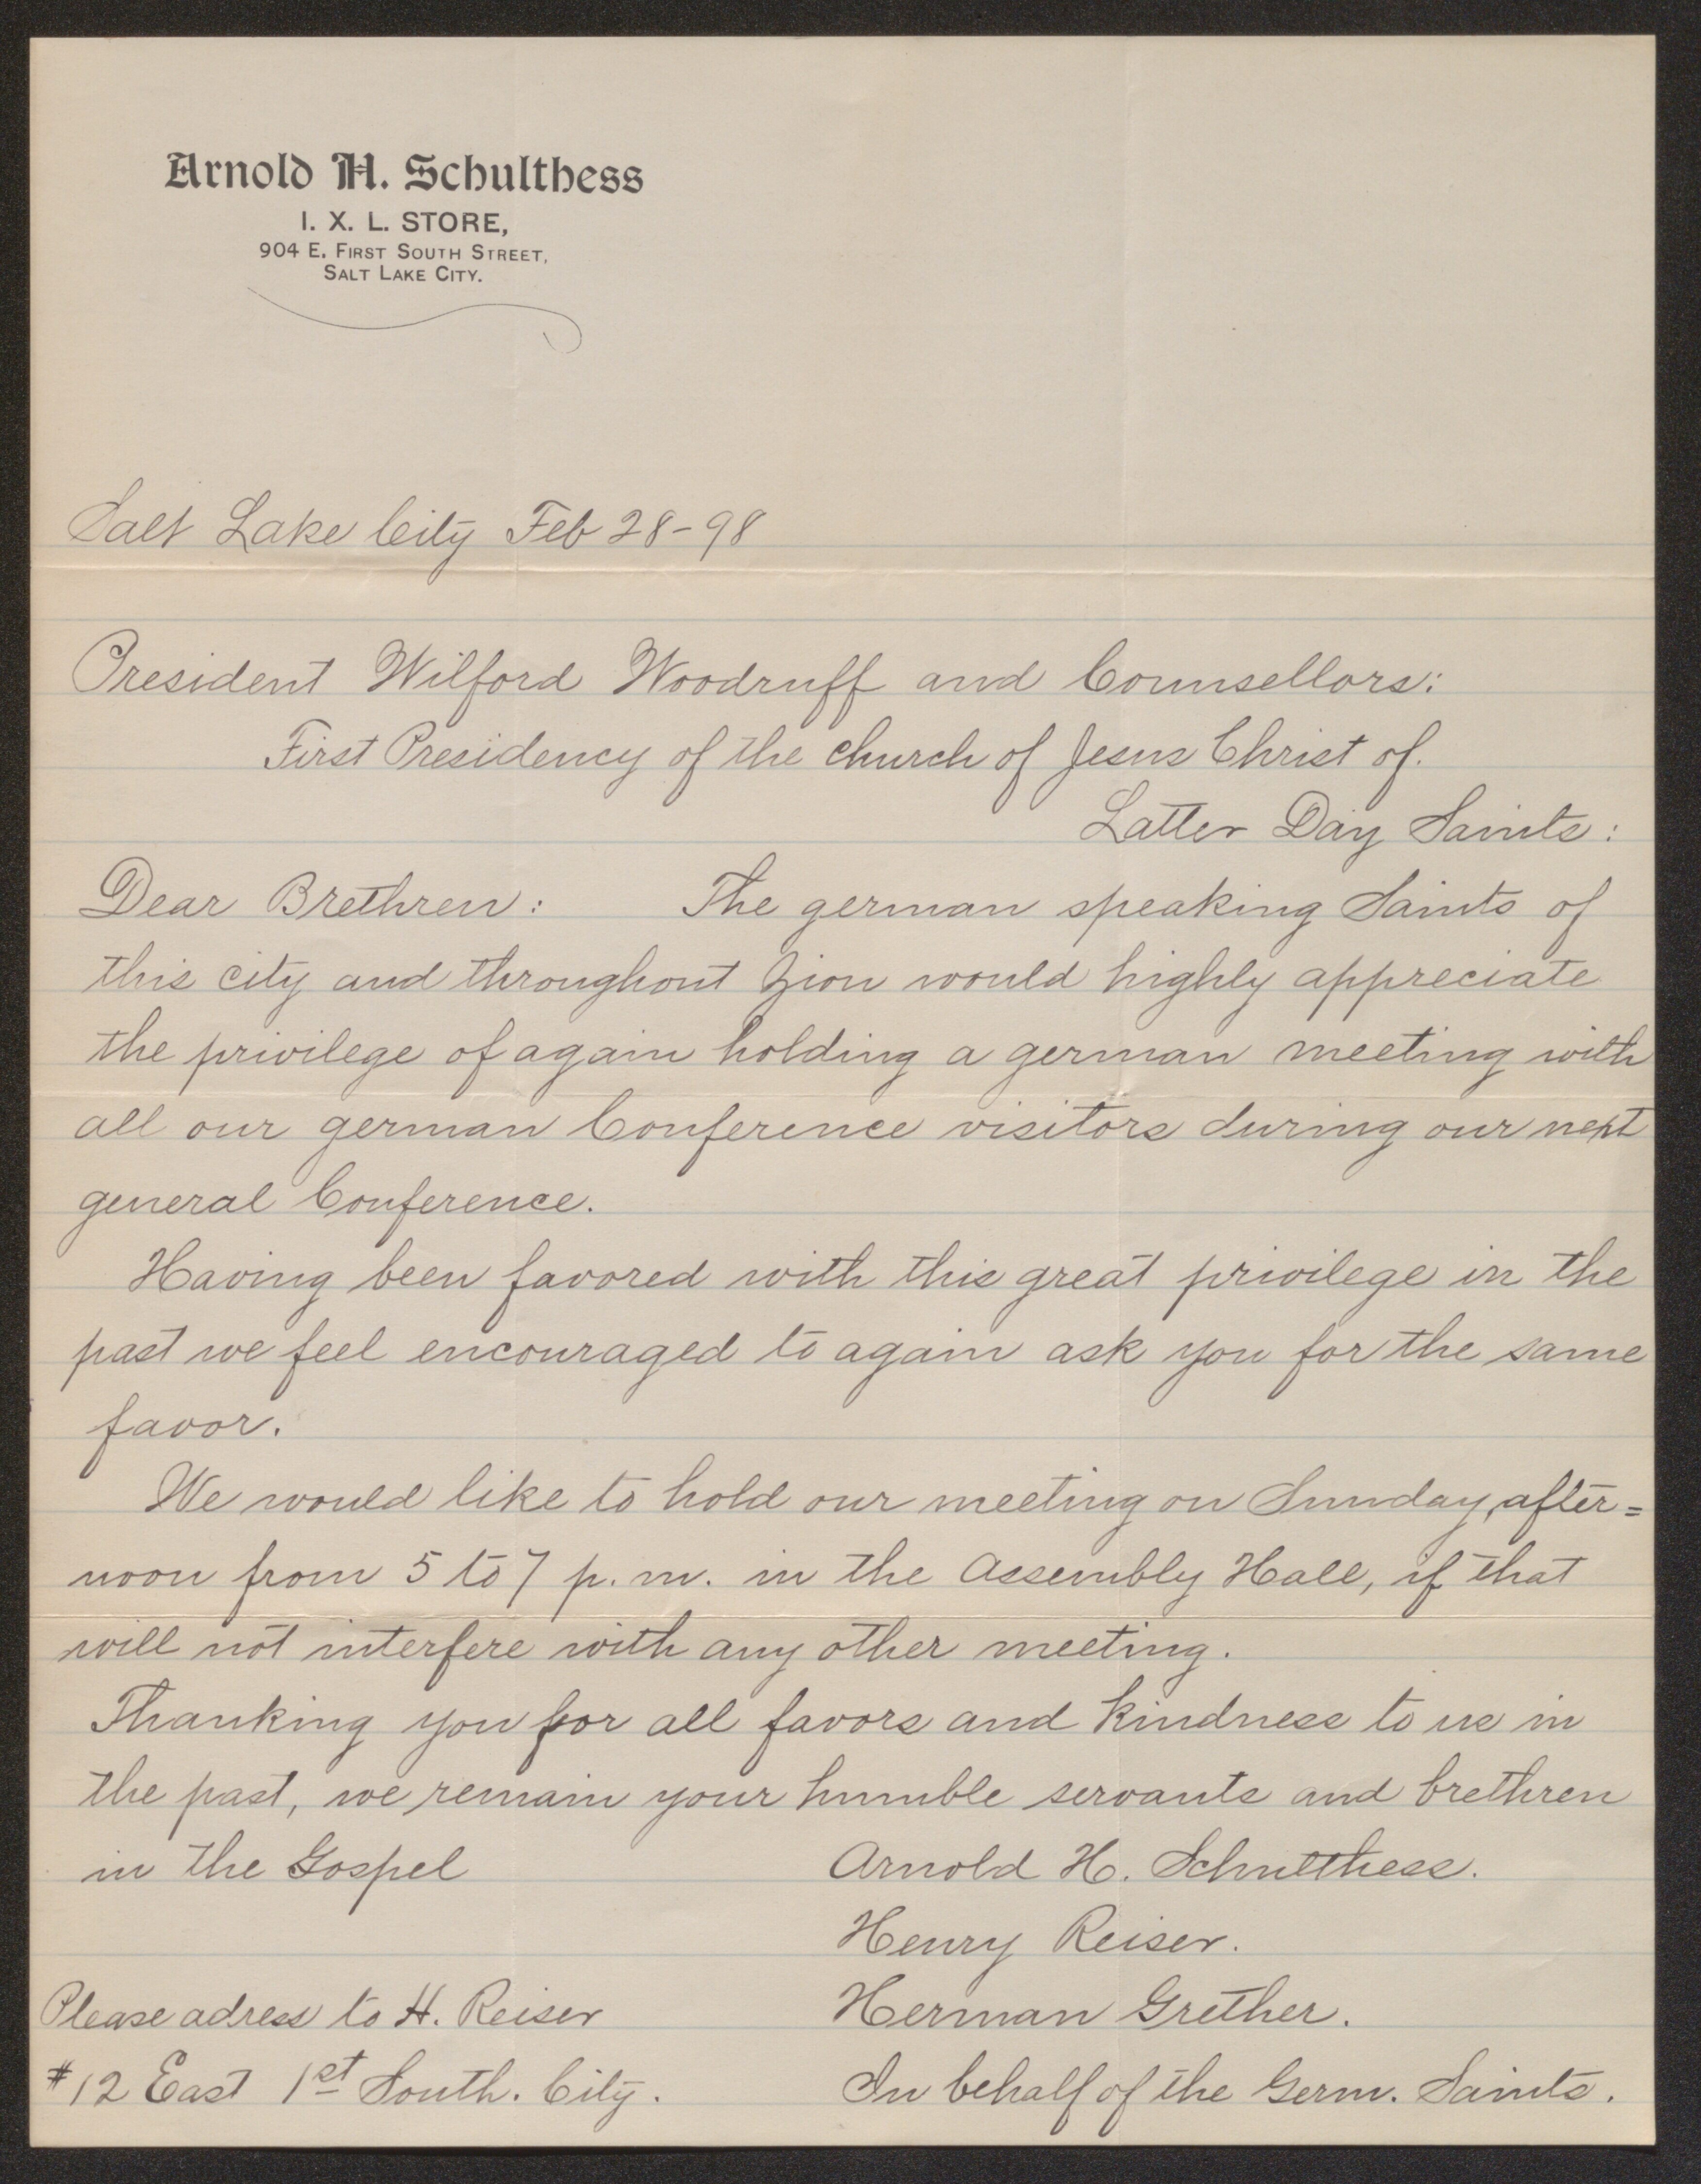 Arnold H. Schulthess
I. X. L. STORE,
904 E. FIRST SOUTH STREET,
SALT LAKE CITY.
Salt Lake City Feb 28-98
President Wilford Woodruff and Counsellors:
First Presidency of the church of Jesus Christ of.
Latter Day Saints:
Dear Brethren: The german speaking Saints of
this city and throughout Zion would highly appreciate
the privilege of again holding a german meeting with
all our german Conference visitors during our next
general Conference.
Having been favored with this great privilege in the
past we feel encouraged to again ask you for the same
favor.
We would like to hold our meeting on Sunday, after=
noon from 5 to 7 p.m. in the Assembly Hall, if that
will not interfere with any other meeting.
Thanking you for all favors and kindness to us in
the past, we remain your humble servants and brethren
in the Gospel Arnold H. Schulthess.
Henry Reiser.
Please adress to H. Reiser Herman Grether.
#12 East 1st South. City. In behalf of the Germ. Saints.